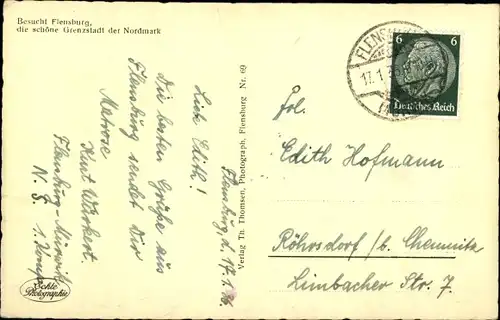 Besucht Flensburg,
die schöne Grenzstadt der Nordmark
Flensburg, d. 17.1.36.
Liebe Edith!
Die besten Grüße aus
Flensburg sendet Dir
Matrose
Kurt
Flensburg-Mürwik
N. S. 1. Komp.
Echte
Photographie
Verlag Th. Thomsen, Photograph, Flensburg Nr. 69
FLENSBURG
17.1.
6 6
Deutsches Reich
Frl.
Edith Hofmann
Röhrsdorf /b. Chemnitz
Limbacher Str. 7.